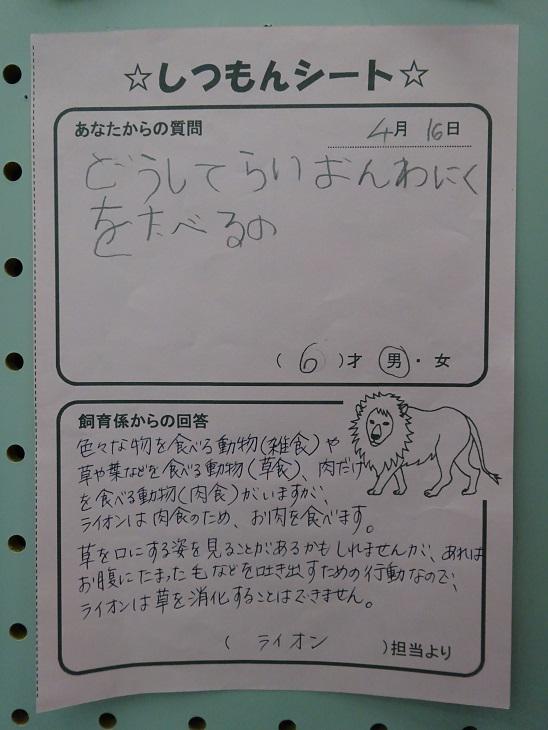 ☆しつもんシート☆
あなたからの質問
4月 16日
どうしてらいおんわにく
をたべるの
( 6 )才 男・女
飼育係からの回答
色々な物を食べる動物(雑食)や
草や葉などを食べる動物(草食)、肉だけ
を食べる動物(肉食)がいますが、
ライオンは肉食のため、お肉を食べます。
草を口にする姿を見ることがあるかもしれませんが、あれは
お腹にたまった毛などを吐き出すための行動なので、
ライオンは草を消化することはできません。
( ライオン )担当より